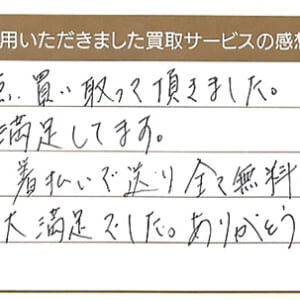 用いただきました買取サービスの感想
買い取って頂きました。
満足してます。
着払いで送り全て無料
大満足でした。ありがとう